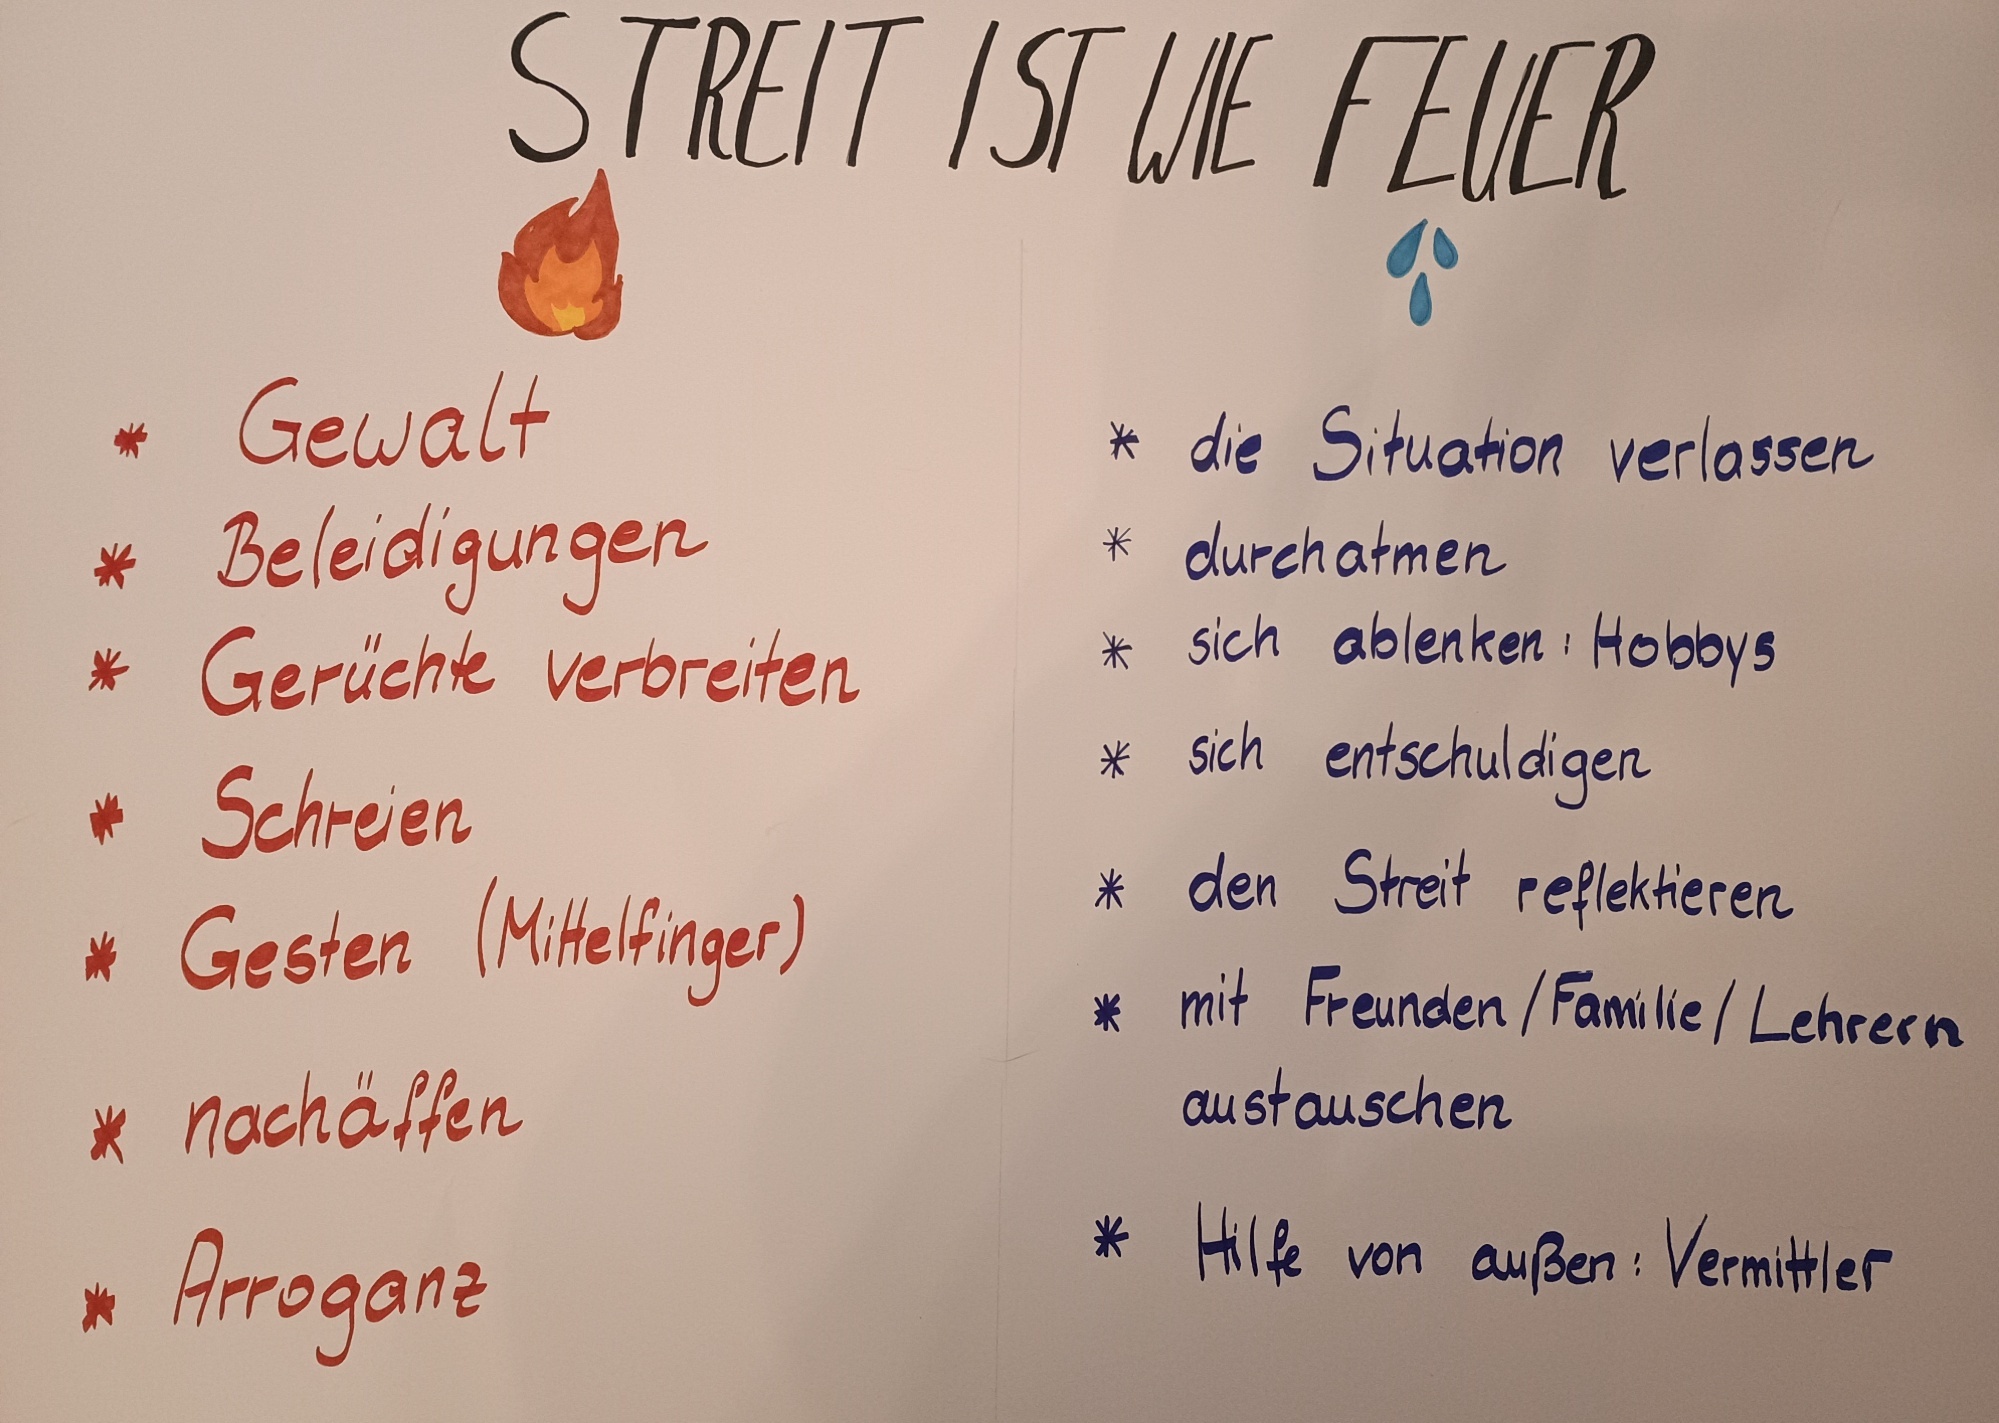 STREIT IST WIE FEUER
* Gewalt
* Beleidigungen
* Gerüchte verbreiten
* Schreien
* Gesten (Mittelfinger)
* nachäffen
* Arroganz
* die Situation verlassen
* durchatmen
* sich ablenken: Hobbys
* sich entschuldigen
* den Streit reflektieren
* mit Freunden/Familie/Lehrern
austauschen
* Hilfe von außen: Vermittler